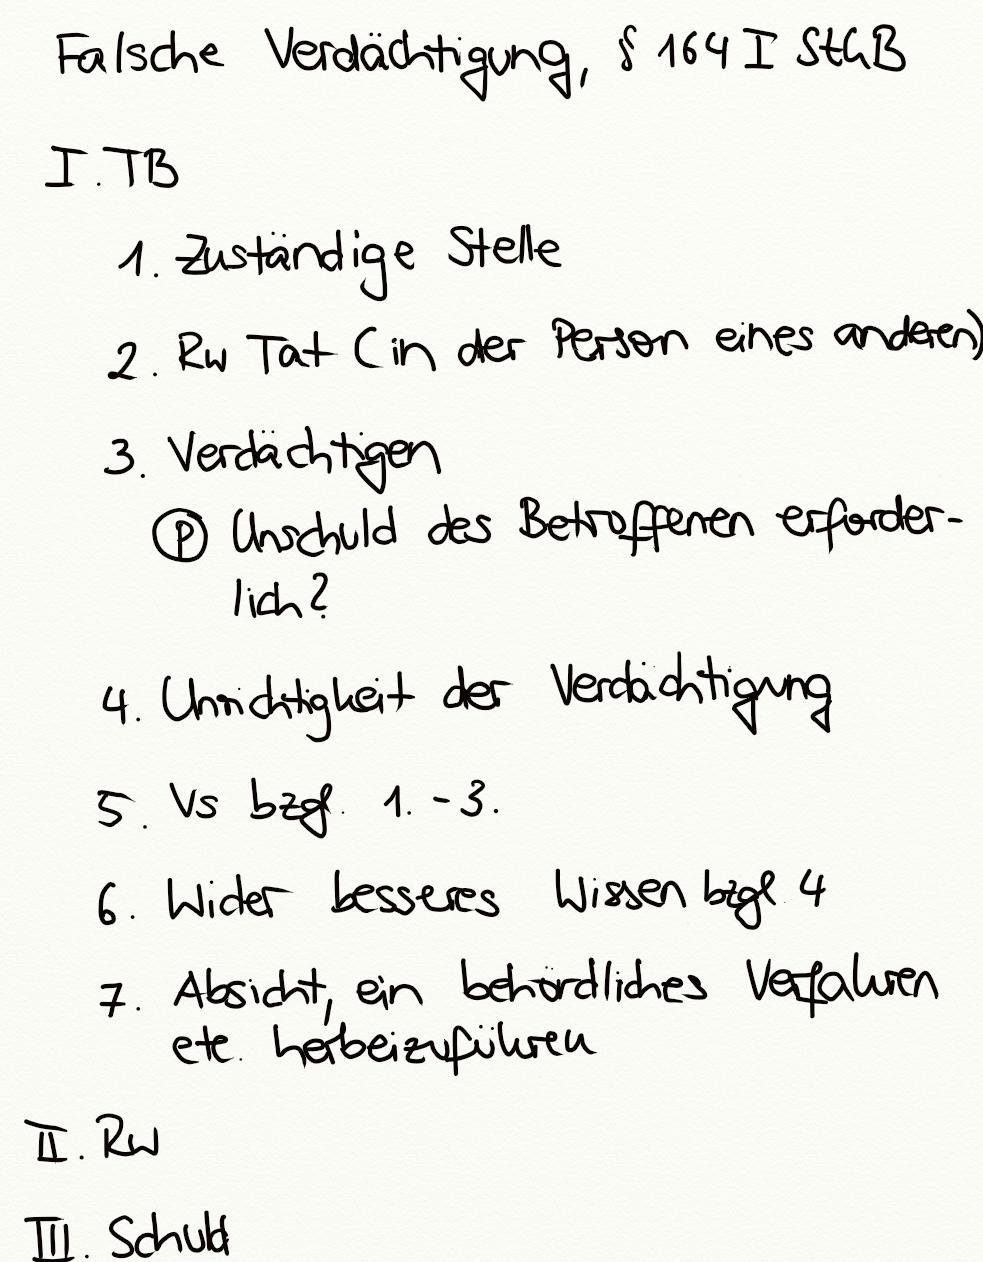 Falsche Verdächtigung, § 164 I StGB
I. TB
1. Zuständige Stelle
2. Rw Tat (in der Person eines anderen)
3. Verdächtigen
Ⓟ Unschuld des Betroffenen erforder-
lich?
4. Unrichtigkeit der Verdächtigung
5. Vs bzgl. 1. - 3.
6. Wider besseres Wissen bzgl. 4
7. Absicht, ein behördliches Verfahren
etc. herbeizuführen
II. Rw
III. Schuld